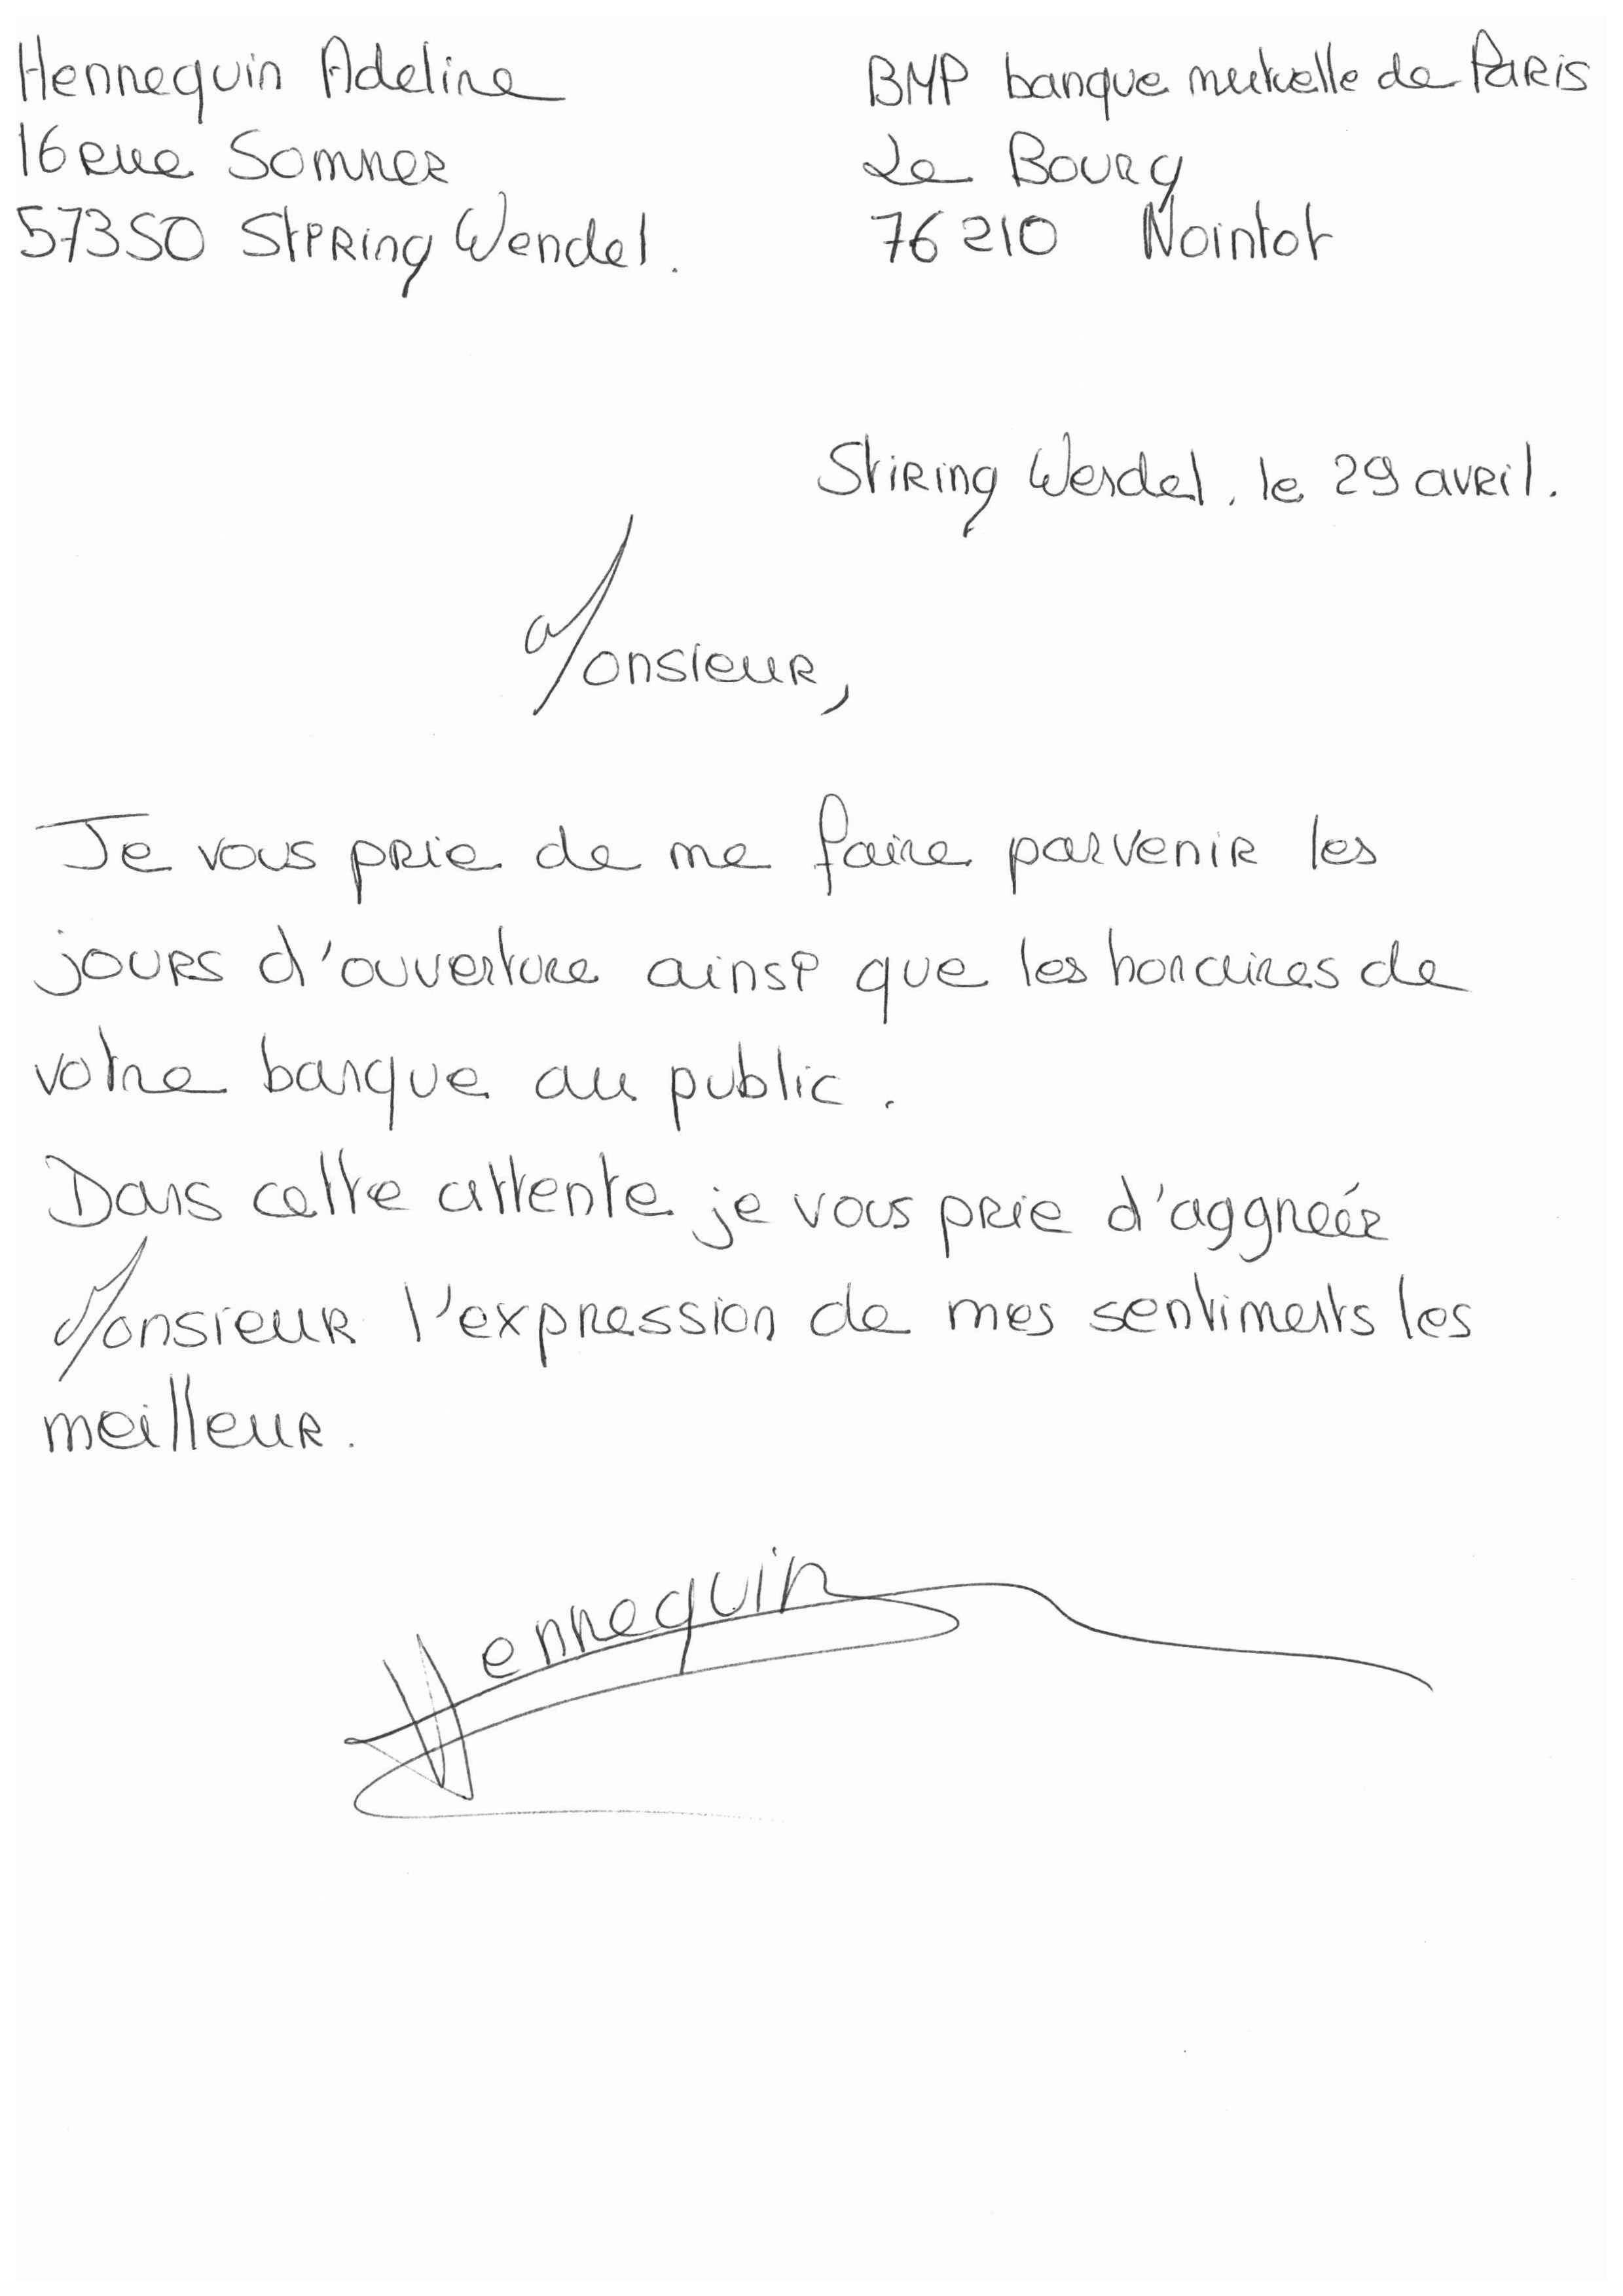 Hennequin Adeline
16 rue Sommer
57350 Stiring Wendel.
BMP banque mutuelle de Paris
Le Bourg
76210 Nointot
Stiring Wendel, le 29 avril.
Monsieur,
Je vous prie de me faire parvenir les
jours d'ouverture ainsi que les horaires de
votre banque au public.
Dans cette attente je vous prie d'aggréér
Monsieur l'expression de mes sentiments les
meilleur.
Hennequin